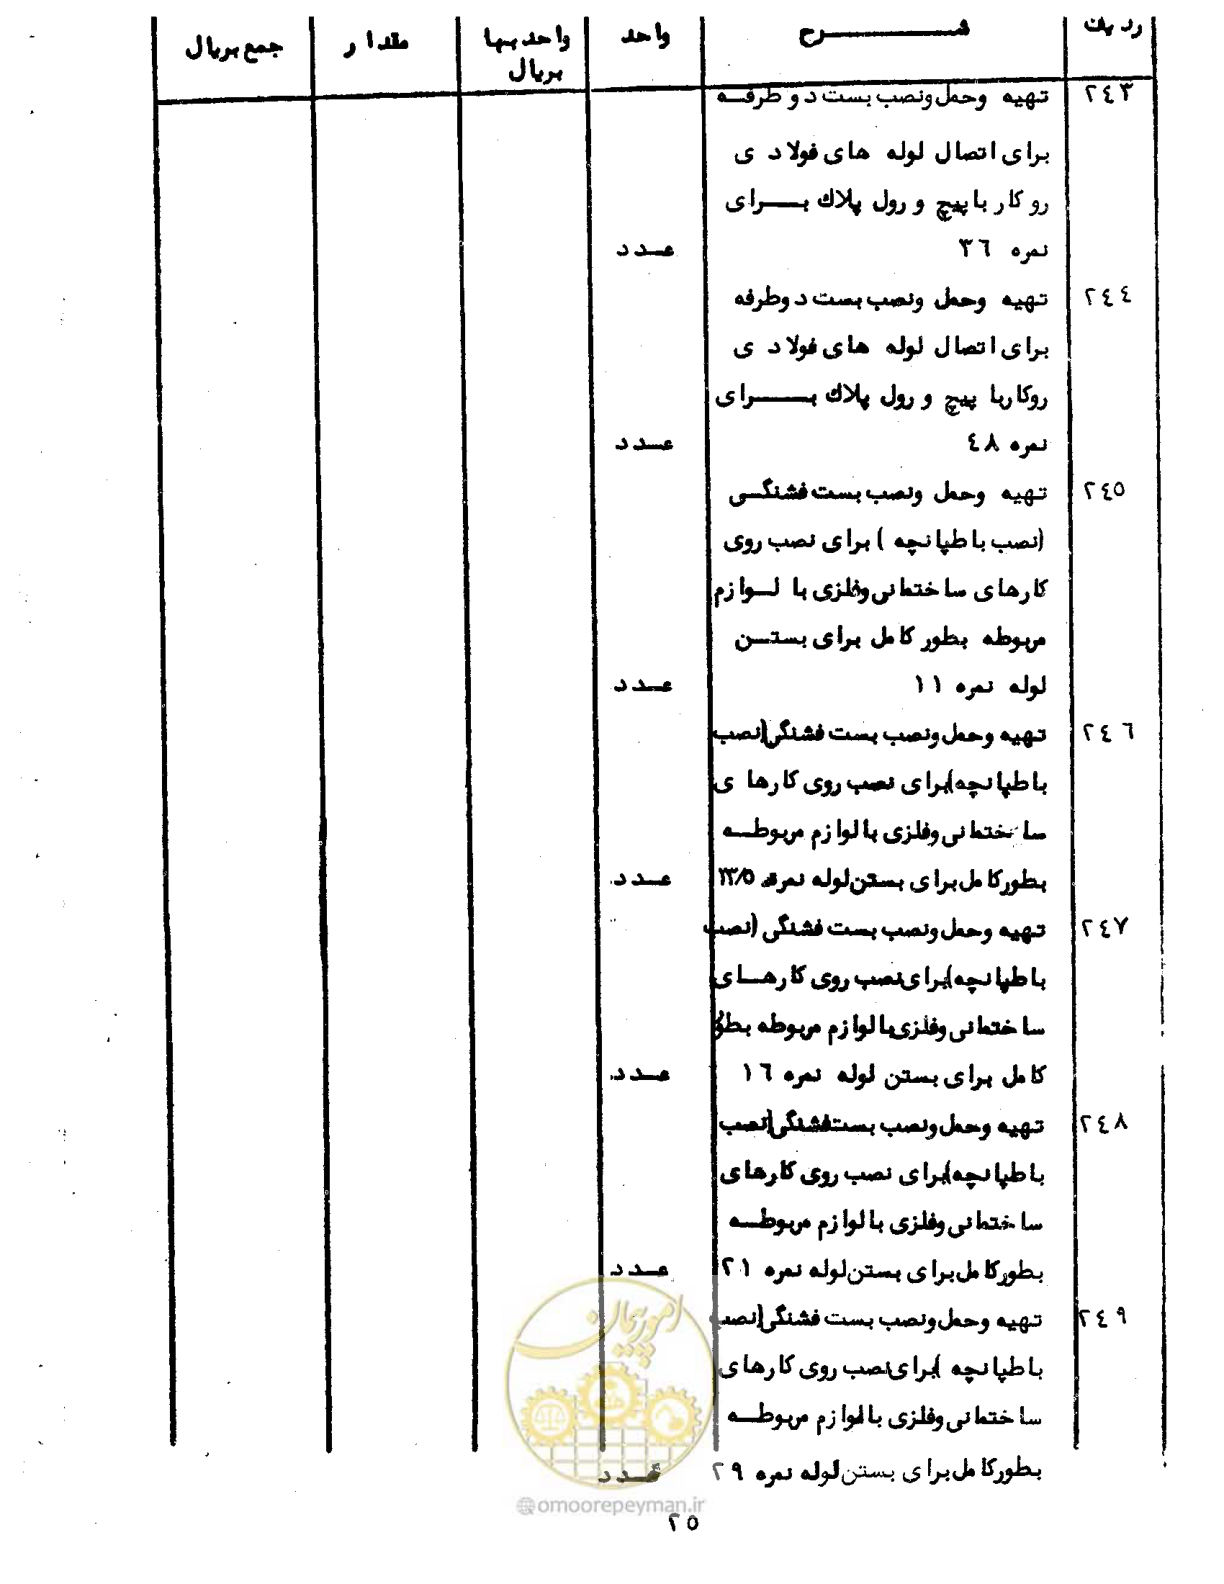 ردیف شرح واحد واحد بها بریال مقدار جمع بریال
۲٤۳ تهیه وحمل ونصب بست دو طرفه
برای اتصال لوله های فولادی
روکار با پیچ و رول پلاك برای
نمره ۳٦ عدد
۲٤٤ تهیه وحمل ونصب بست دوطرفه
برای اتصال لوله های فولادی
روکاربا پیچ و رول پلاك برای
نمره ٤۸ عدد
۲٤٥ تهیه وحمل ونصب بست فشنگی
(نصب با طپانچه) برای نصب روی
کارهای ساختمانی وفلزی با لوازم
مربوطه بطور کامل برای بستن
لوله نمره ۱۱ عدد
۲٤٦ تهیه وحمل ونصب بست فشنگی(نصب
با طپانچه)برای نصب روی کارهای
ساختمانی وفلزی با لوازم مربوطه
بطورکامل برای بستن لوله نمره ۱۳/٥ عدد
۲٤۷ تهیه وحمل ونصب بست فشنگی (نصب
با طپانچه)برای نصب روی کارهای
ساختمانی وفلزی با لوازم مربوطه بطور
کامل برای بستن لوله نمره ۱٦ عدد
۲٤۸ تهیه وحمل ونصب بست فشنگی(نصب
با طپانچه)برای نصب روی کارهای
ساختمانی وفلزی با لوازم مربوطه
بطورکامل برای بستن لوله نمره ۲۱ عدد
۲٤۹ تهیه وحمل ونصب بست فشنگی(نصب
با طپانچه )برای نصب روی کارهای
ساختمانی وفلزی با لوازم مربوطه
بطورکامل برای بستن لوله نمره ۲۹ عدد
امور پیمان
@omoorepeyman.ir
۲٥